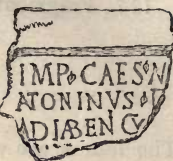 IMP◆CAES◆N
ATONINVS◆F
ADIABEN CV